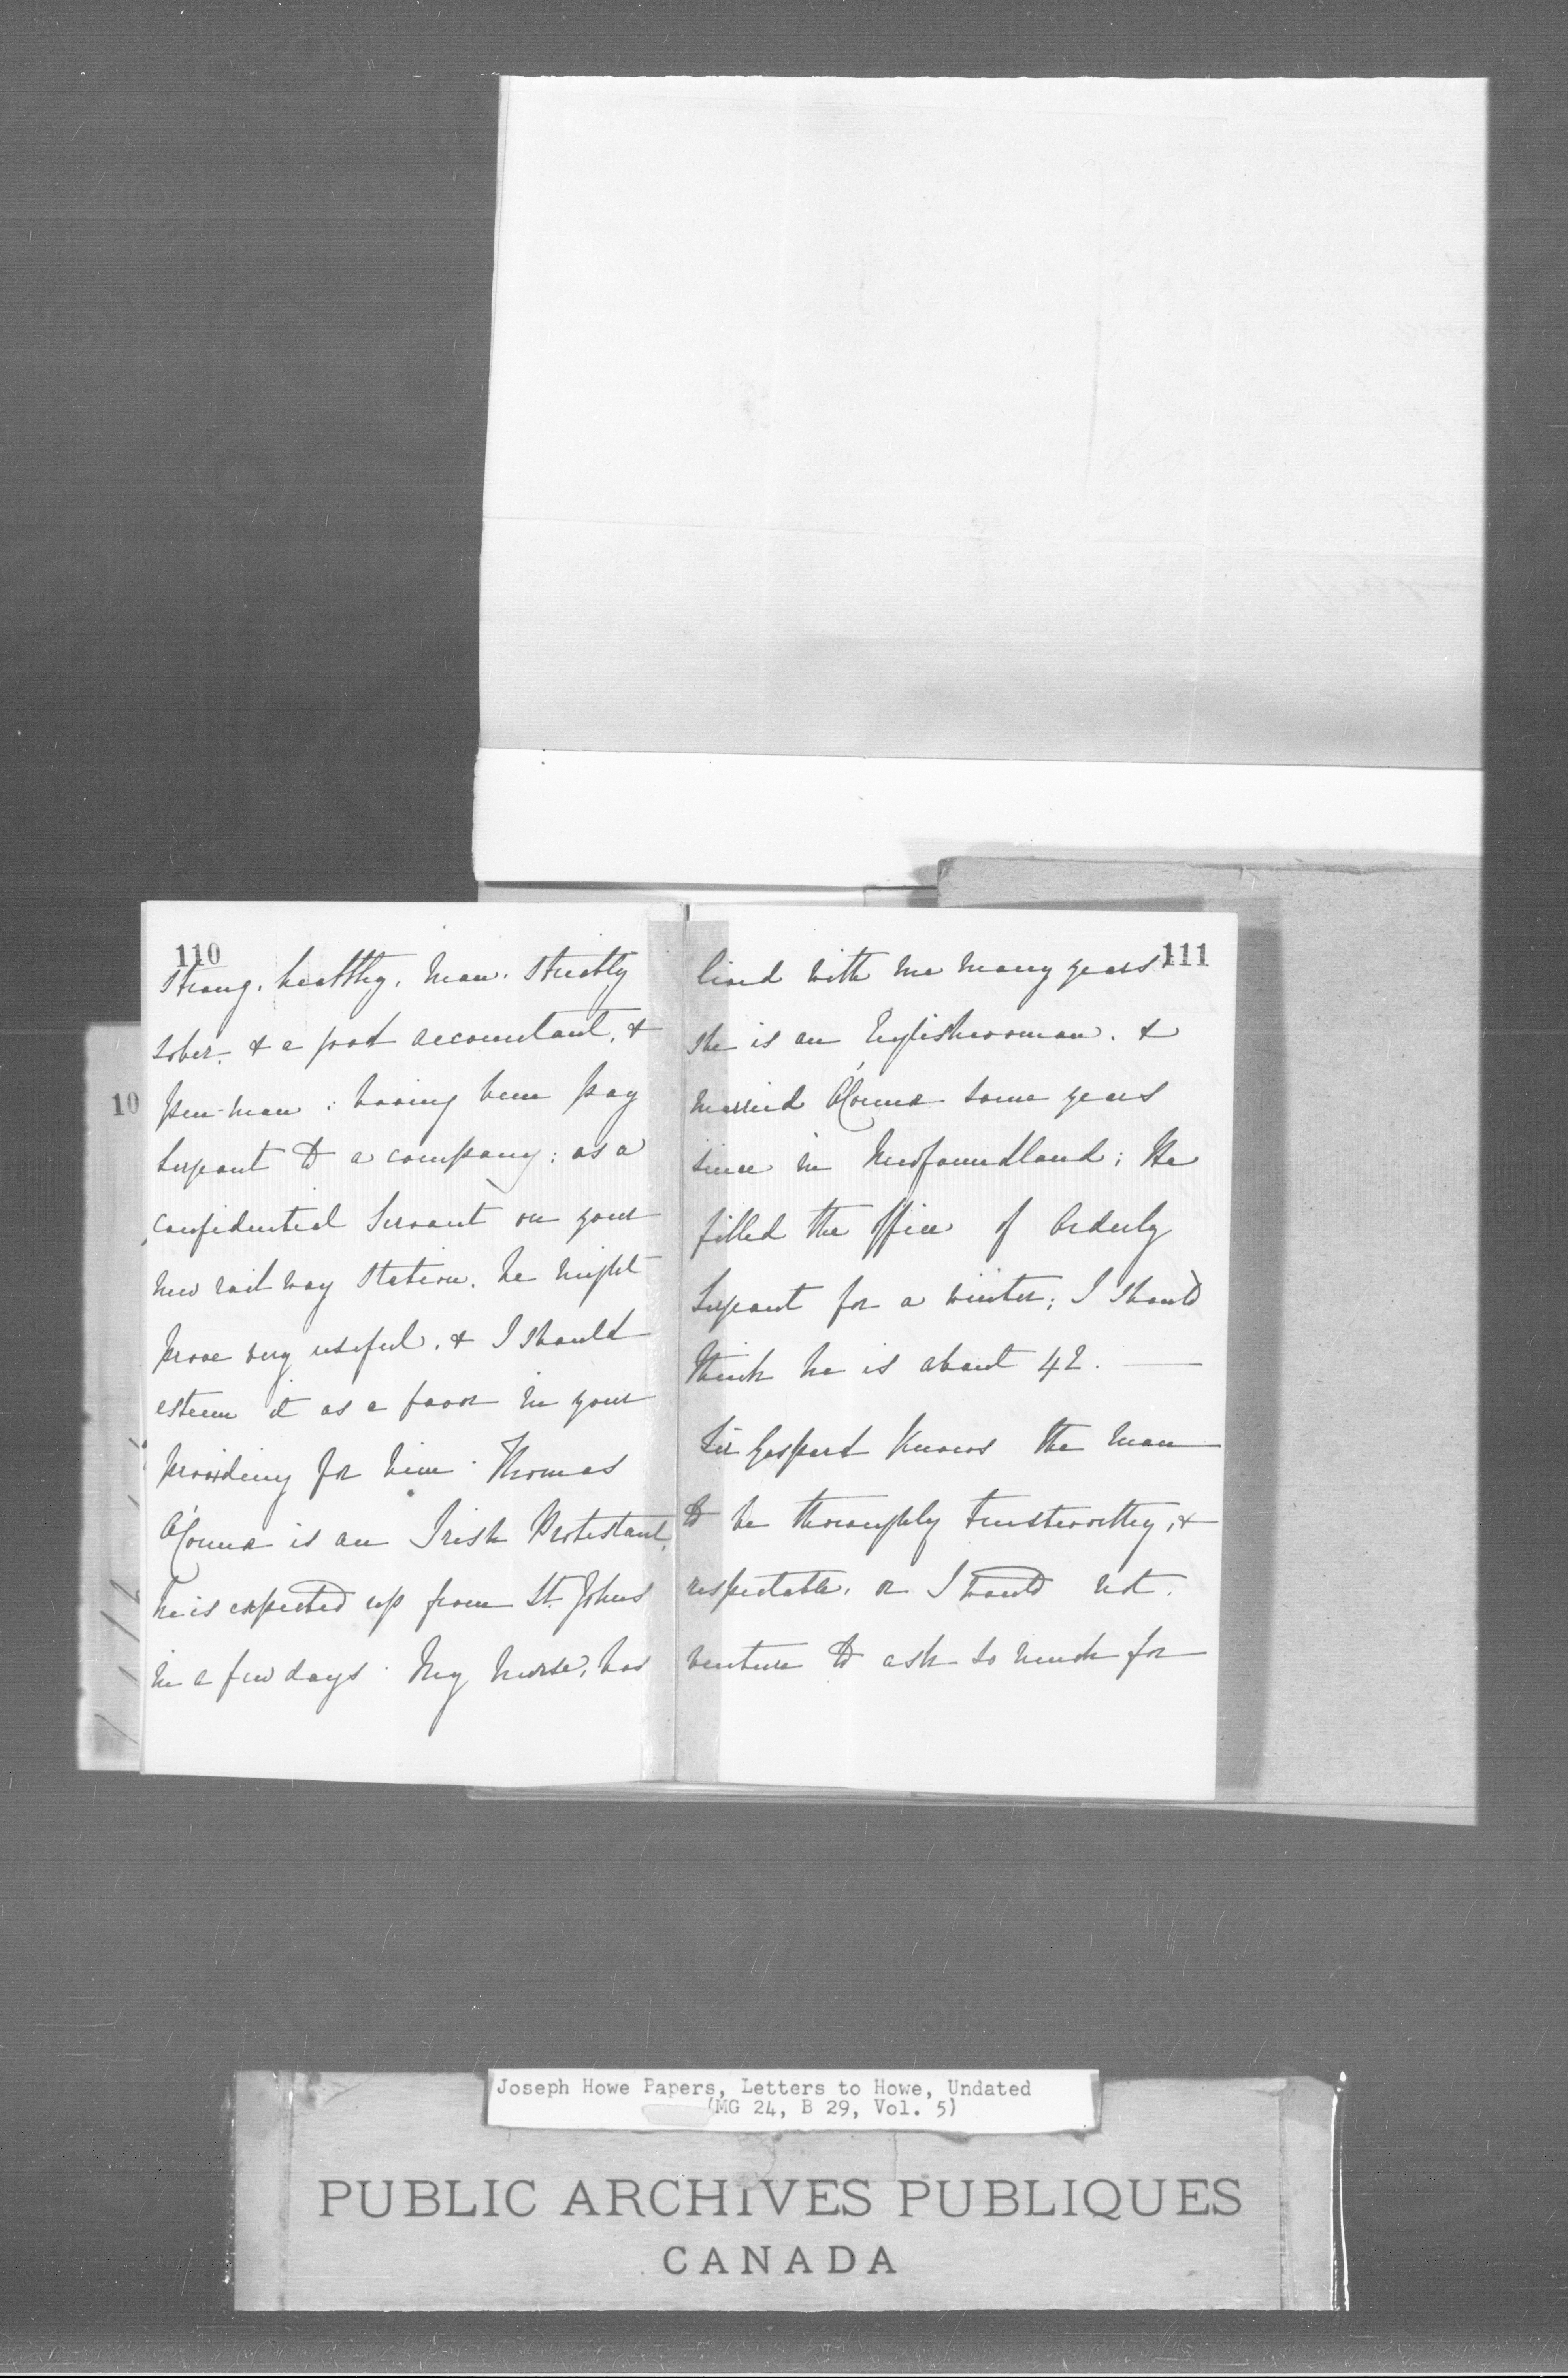 110
strong, healthy, man. strictly
sober, & a good accountant, &
pen-man; having been pay
Serjeant to a company; as a
confidential Servant on your
new rail way station, he might
prove very useful, & I should
esteem it as a favor in your
providing for him. Thomas
is an Irish Protestant,
he is expected up from St. Johns
in a few days. My nurse, has
111
lived with me many years
she is an Englishwoman, &
married some years
since in Newfoundland; He
filled the Office of Orderly
Serjeant for a winter; I should
think he is about 42. —
Sir Gaspard knows the man
to be thoroughly trustworthy, &
respectable, or I would not
venture to ask so much for
10
Joseph Howe Papers, Letters to Howe, Undated
(MG 24, B 29, Vol. 5)
PUBLIC ARCHIVES PUBLIQUES
CANADA